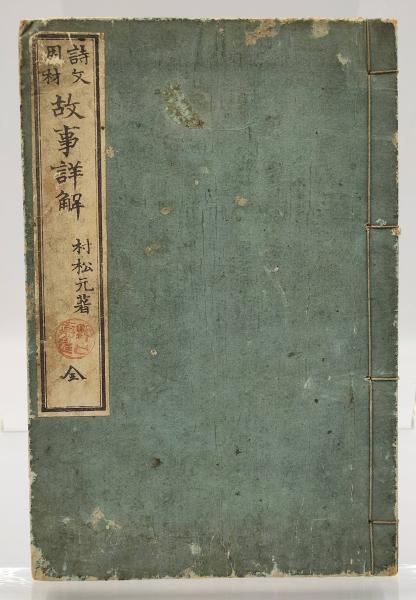 詩文
用材
故事詳解
村松元著
全